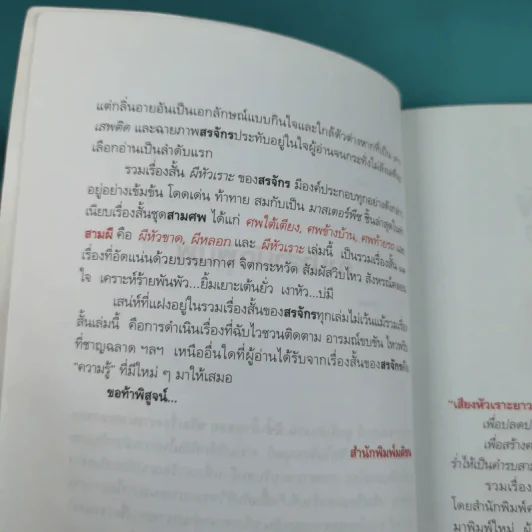 แต่กลิ่นอายอันเป็นเอกลักษณ์แบบกินใจและใกล้ตัว
เสพติด และฉายภาพสรจักรประทับอยู่ในใจผู้อ่านจนกระทั่ง
เลือกอ่านเป็นลำดับแรก
รวมเรื่องสั้น ผีหัวเราะ ของสรจักร มีองค์ประกอบทุกอย่าง
อยู่อย่างเข้มข้น โดดเด่น ท้าทาย สมกับเป็น มาสเตอร์พีซ ชิ้นล่าสุด
เนียบเรื่องสั้นชุดสามศพ ได้แก่ ศพใต้เตียง, ศพข้างบ้าน, ศพท้ายรถ
สามผี คือ ผีหัวขาด, ผีหลอก และ ผีหัวเราะ เล่มนี้ เป็นรวมเรื่องสั้น
เรื่องที่อัดแน่นด้วยบรรยากาศ จิตกระหวัด สัมผัสวิบไหว สังหรณ์
ใจ เคราะห์ร้ายพันพัว...ยิ้มเยาะเต้นยั่ว เงาหัว...บ่มี
เสน่ห์ที่แฝงอยู่ในรวมเรื่องสั้นของสรจักรทุกเล่มไม่เว้นแม้รวมเรื่อง
สั้นเล่มนี้ คือการดำเนินเรื่องที่ฉับไวชวนติดตาม อารมณ์ขบขัน ไหวพริบ
ที่ชาญฉลาด ฯลฯ เหนืออื่นใดที่ผู้อ่านได้รับจากเรื่องสั้นของสรจักรคือ
"ความรู้" ที่มีใหม่ ๆ มาให้เสมอ
ขอท้าพิสูจน์...
สำนักพิมพ์มติชน
"เสียงหัวเราะยาว
เพื่อปลดป
เพื่อสร้างค
ร่ำให้เป็นคำรบสาม
รวมเรื่อง
โดยสำนักพิมพ์
มาพิมพ์ใหม่